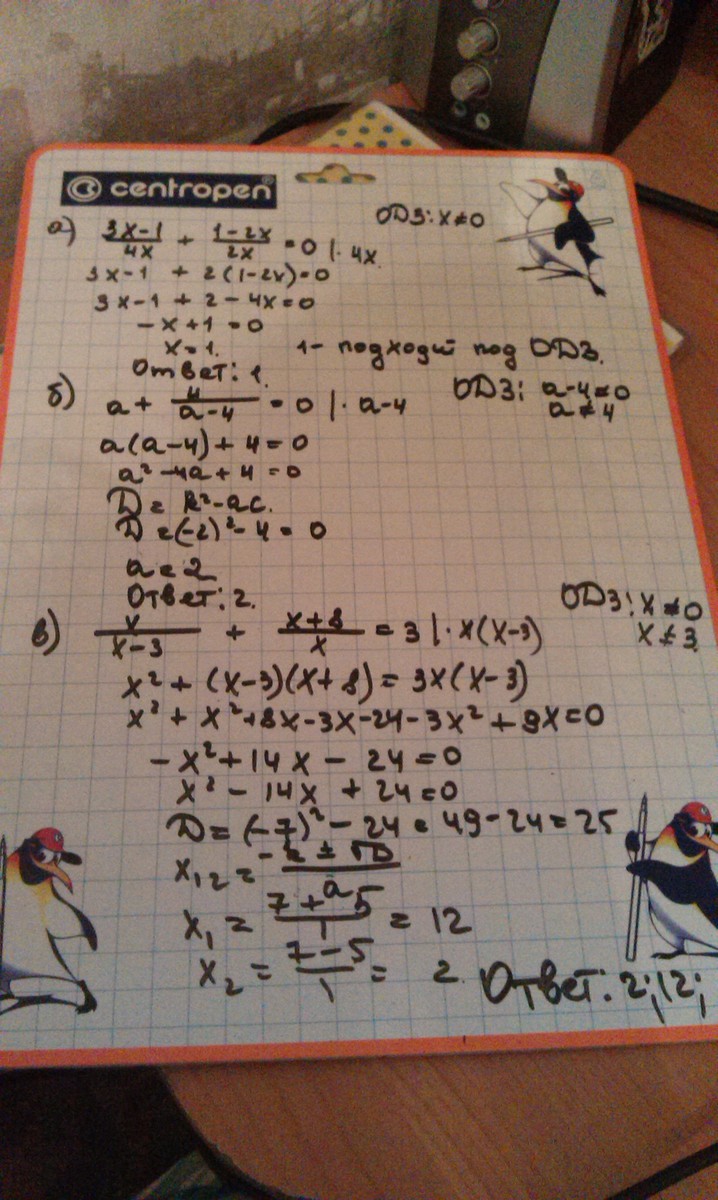 centropen
а) 3x-1/4x + 1-2x/2x = 0 |· 4x ОДЗ: x≠0
3x-1 + 2(1-2x)=0
3x-1 + 2 - 4x=0
-x+1 =0
x=1. 1- подходит под ОДЗ.
Ответ: 1.
б) a + 4/a-4 = 0 |· a-4 ОДЗ: a-4≠0
a≠4
a(a-4)+4=0
a²-4a+4=0
D = k²-ac.
D=(-2)²-4=0
a=2
Ответ: 2.
в) x/x-3 + x+8/x = 3 |· x(x-3) ОДЗ: x≠0
x≠3
x²+(x-3)(x+8)=3x(x-3)
x²+x²+8x-3x-24-3x²+9x=0
-x²+14x-24=0
x²-14x+24=0
D=(-7)²-24=49-24=25
x₁,₂ = -k±√D/a
x₁ = 7+5/1 = 12
x₂ = 7-5/1 = 2. Ответ: 2;12;